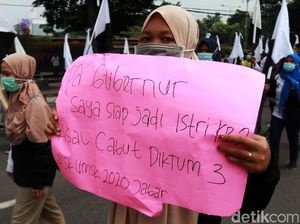 Pa Gubernur
saya siap jadi istri ke 2
Asal Cabut Diktum 3
SK UMSK 2020 Jabar
detikcom